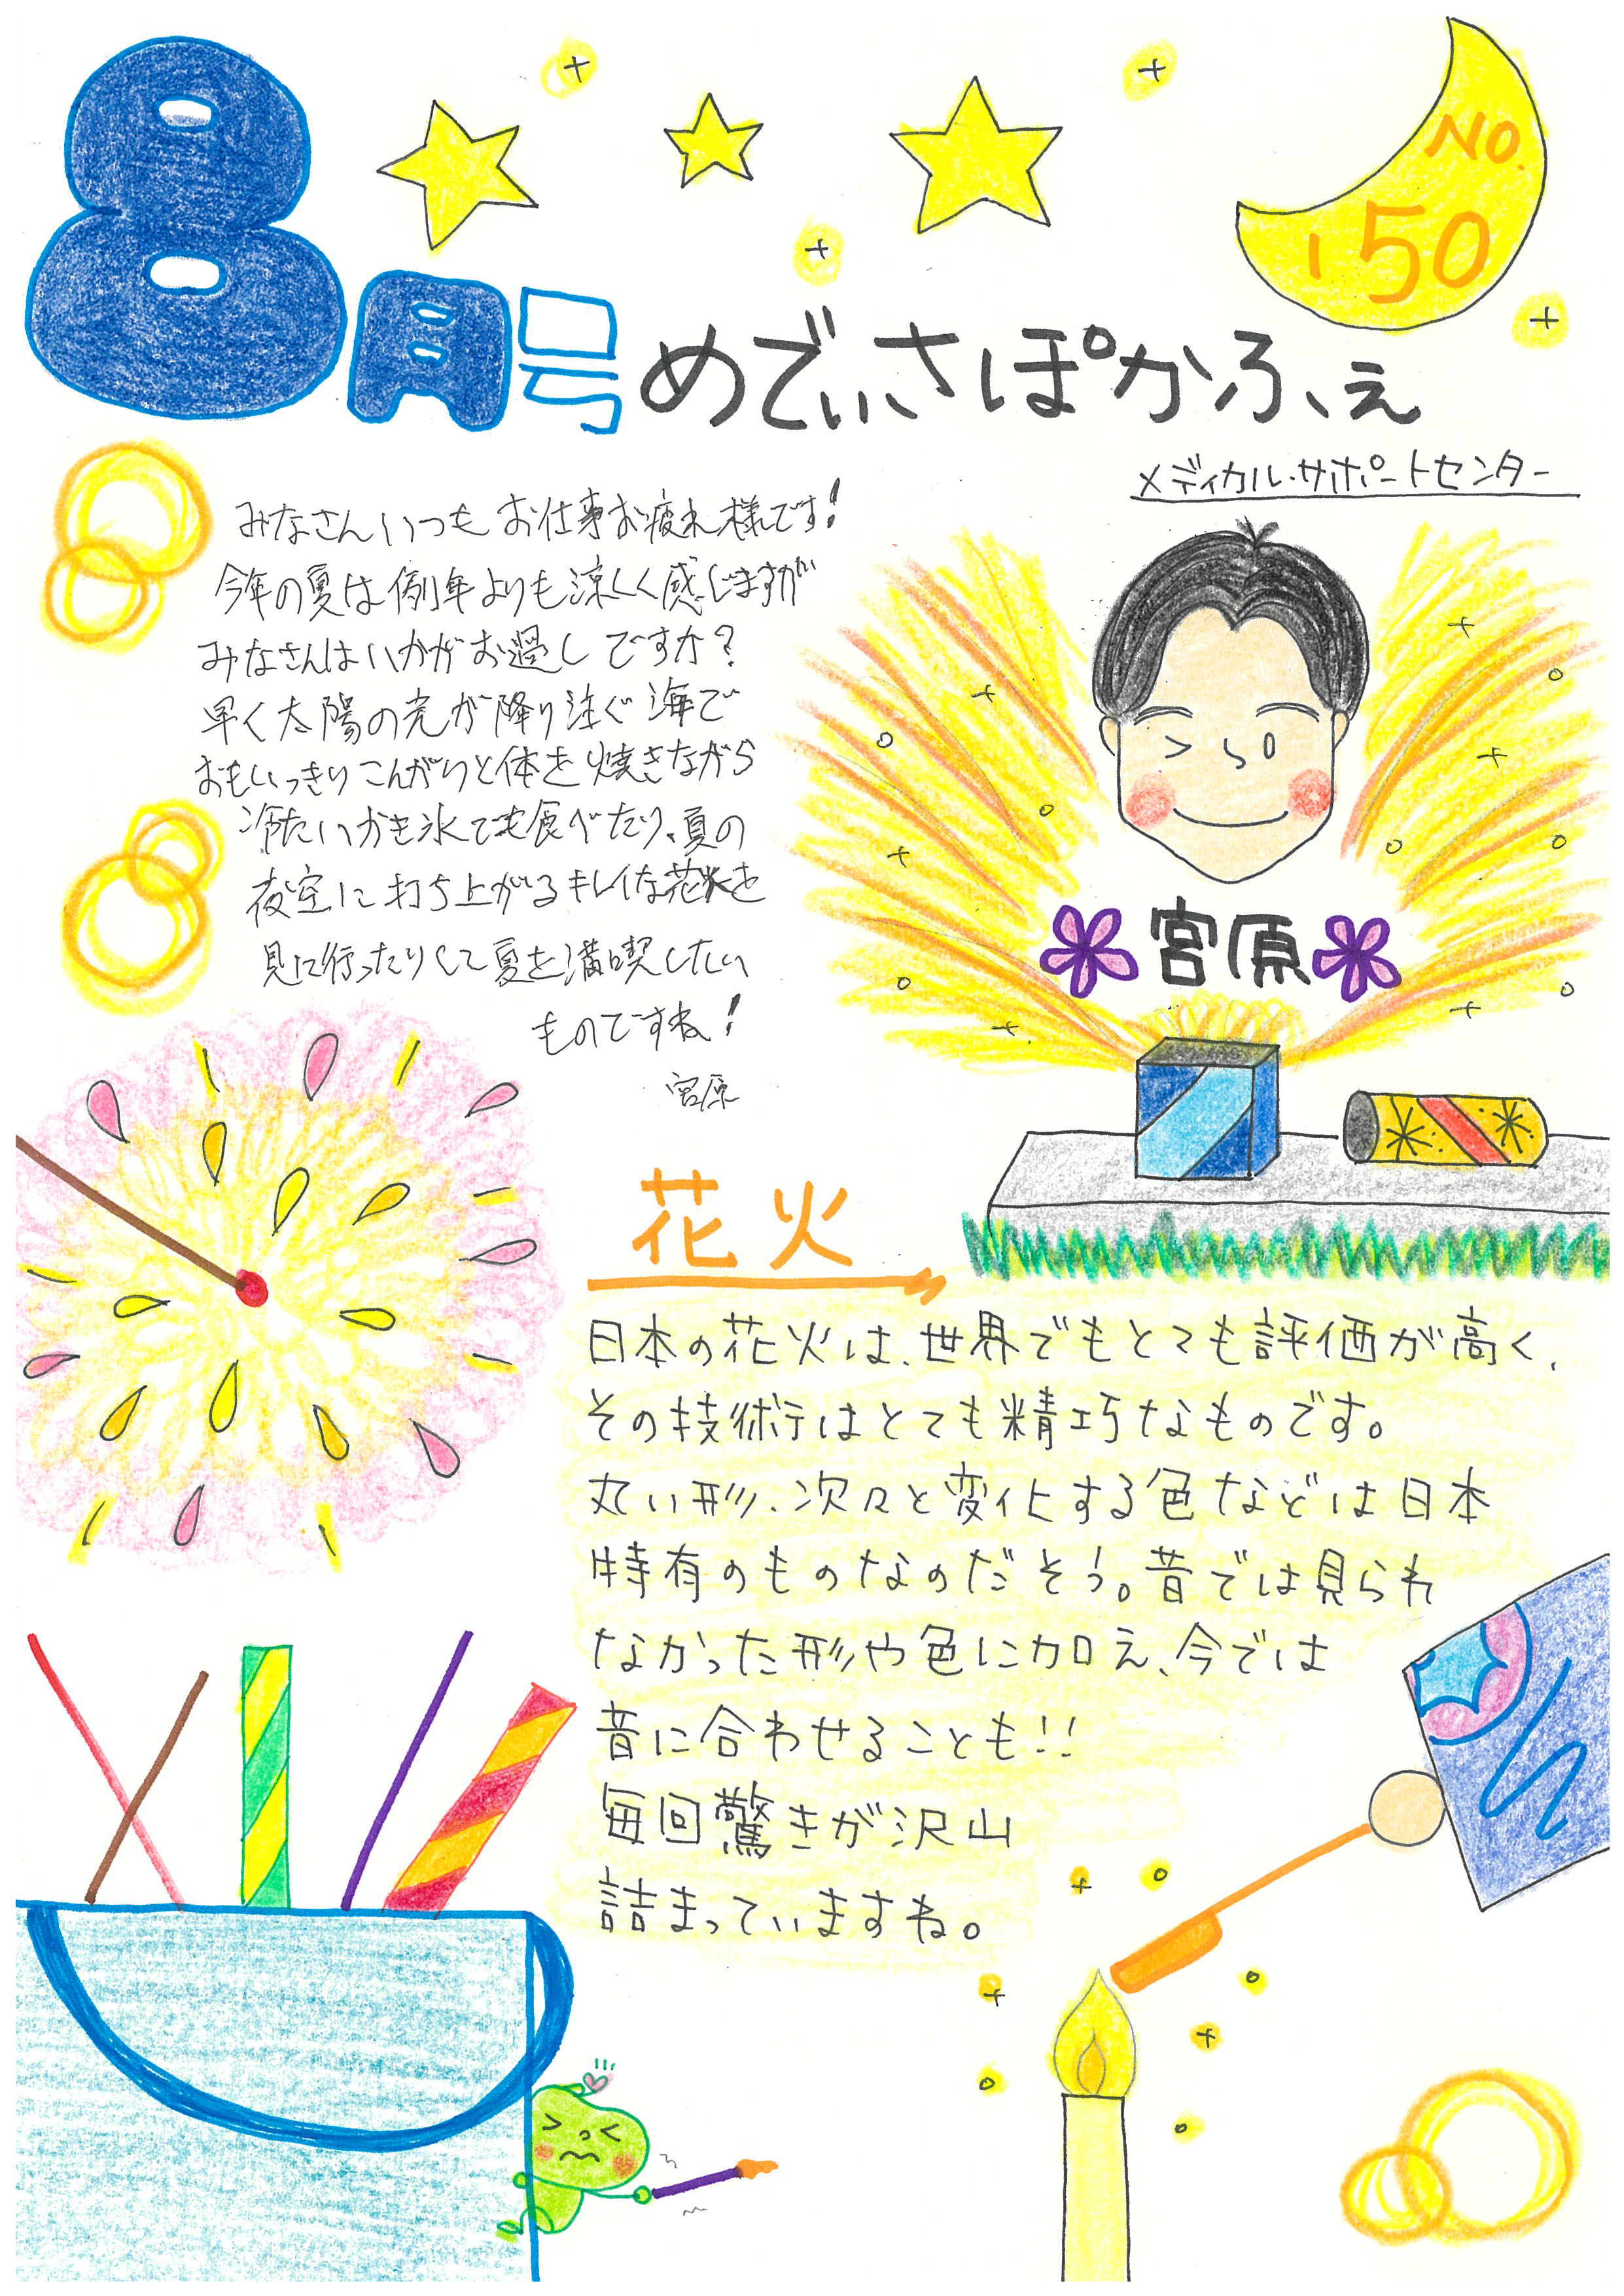 NO.
150
8月号 めでぃさぽかふぇ
メディカル・サポートセンター
みなさんいつもお仕事お疲れ様です!
今年の夏は例年よりも涼しく感じますが
みなさんはいかがお過しですか?
早く太陽の光が降り注ぐ海で
おもいっきりこんがりと体を焼きながら
冷たいかき氷でも食べたり、夏の
夜空に打ち上がるキレイな花火を
見に行ったりして夏を満喫したい
ものですね!
宮原
宮原
花火
日本の花火は、世界でもとても評価が高く、
その技術はとても精巧なものです。
丸い形、次々と変化する色などは日本
特有のものなのだそう。昔では見られ
なかった形や色に加え、今では
音に合わせることも!!
毎回驚きが沢山
詰まっていますね。